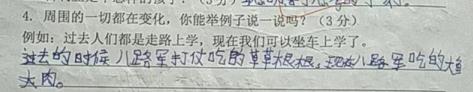 4. 周围的一切都在变化，你能举例子说一说吗？（3分）
例如：过去人们都是走路上学，现在我们可以坐车上学了。
过去的时候八路军打仗吃的草草根根，现在八路军吃的大鱼
大肉。